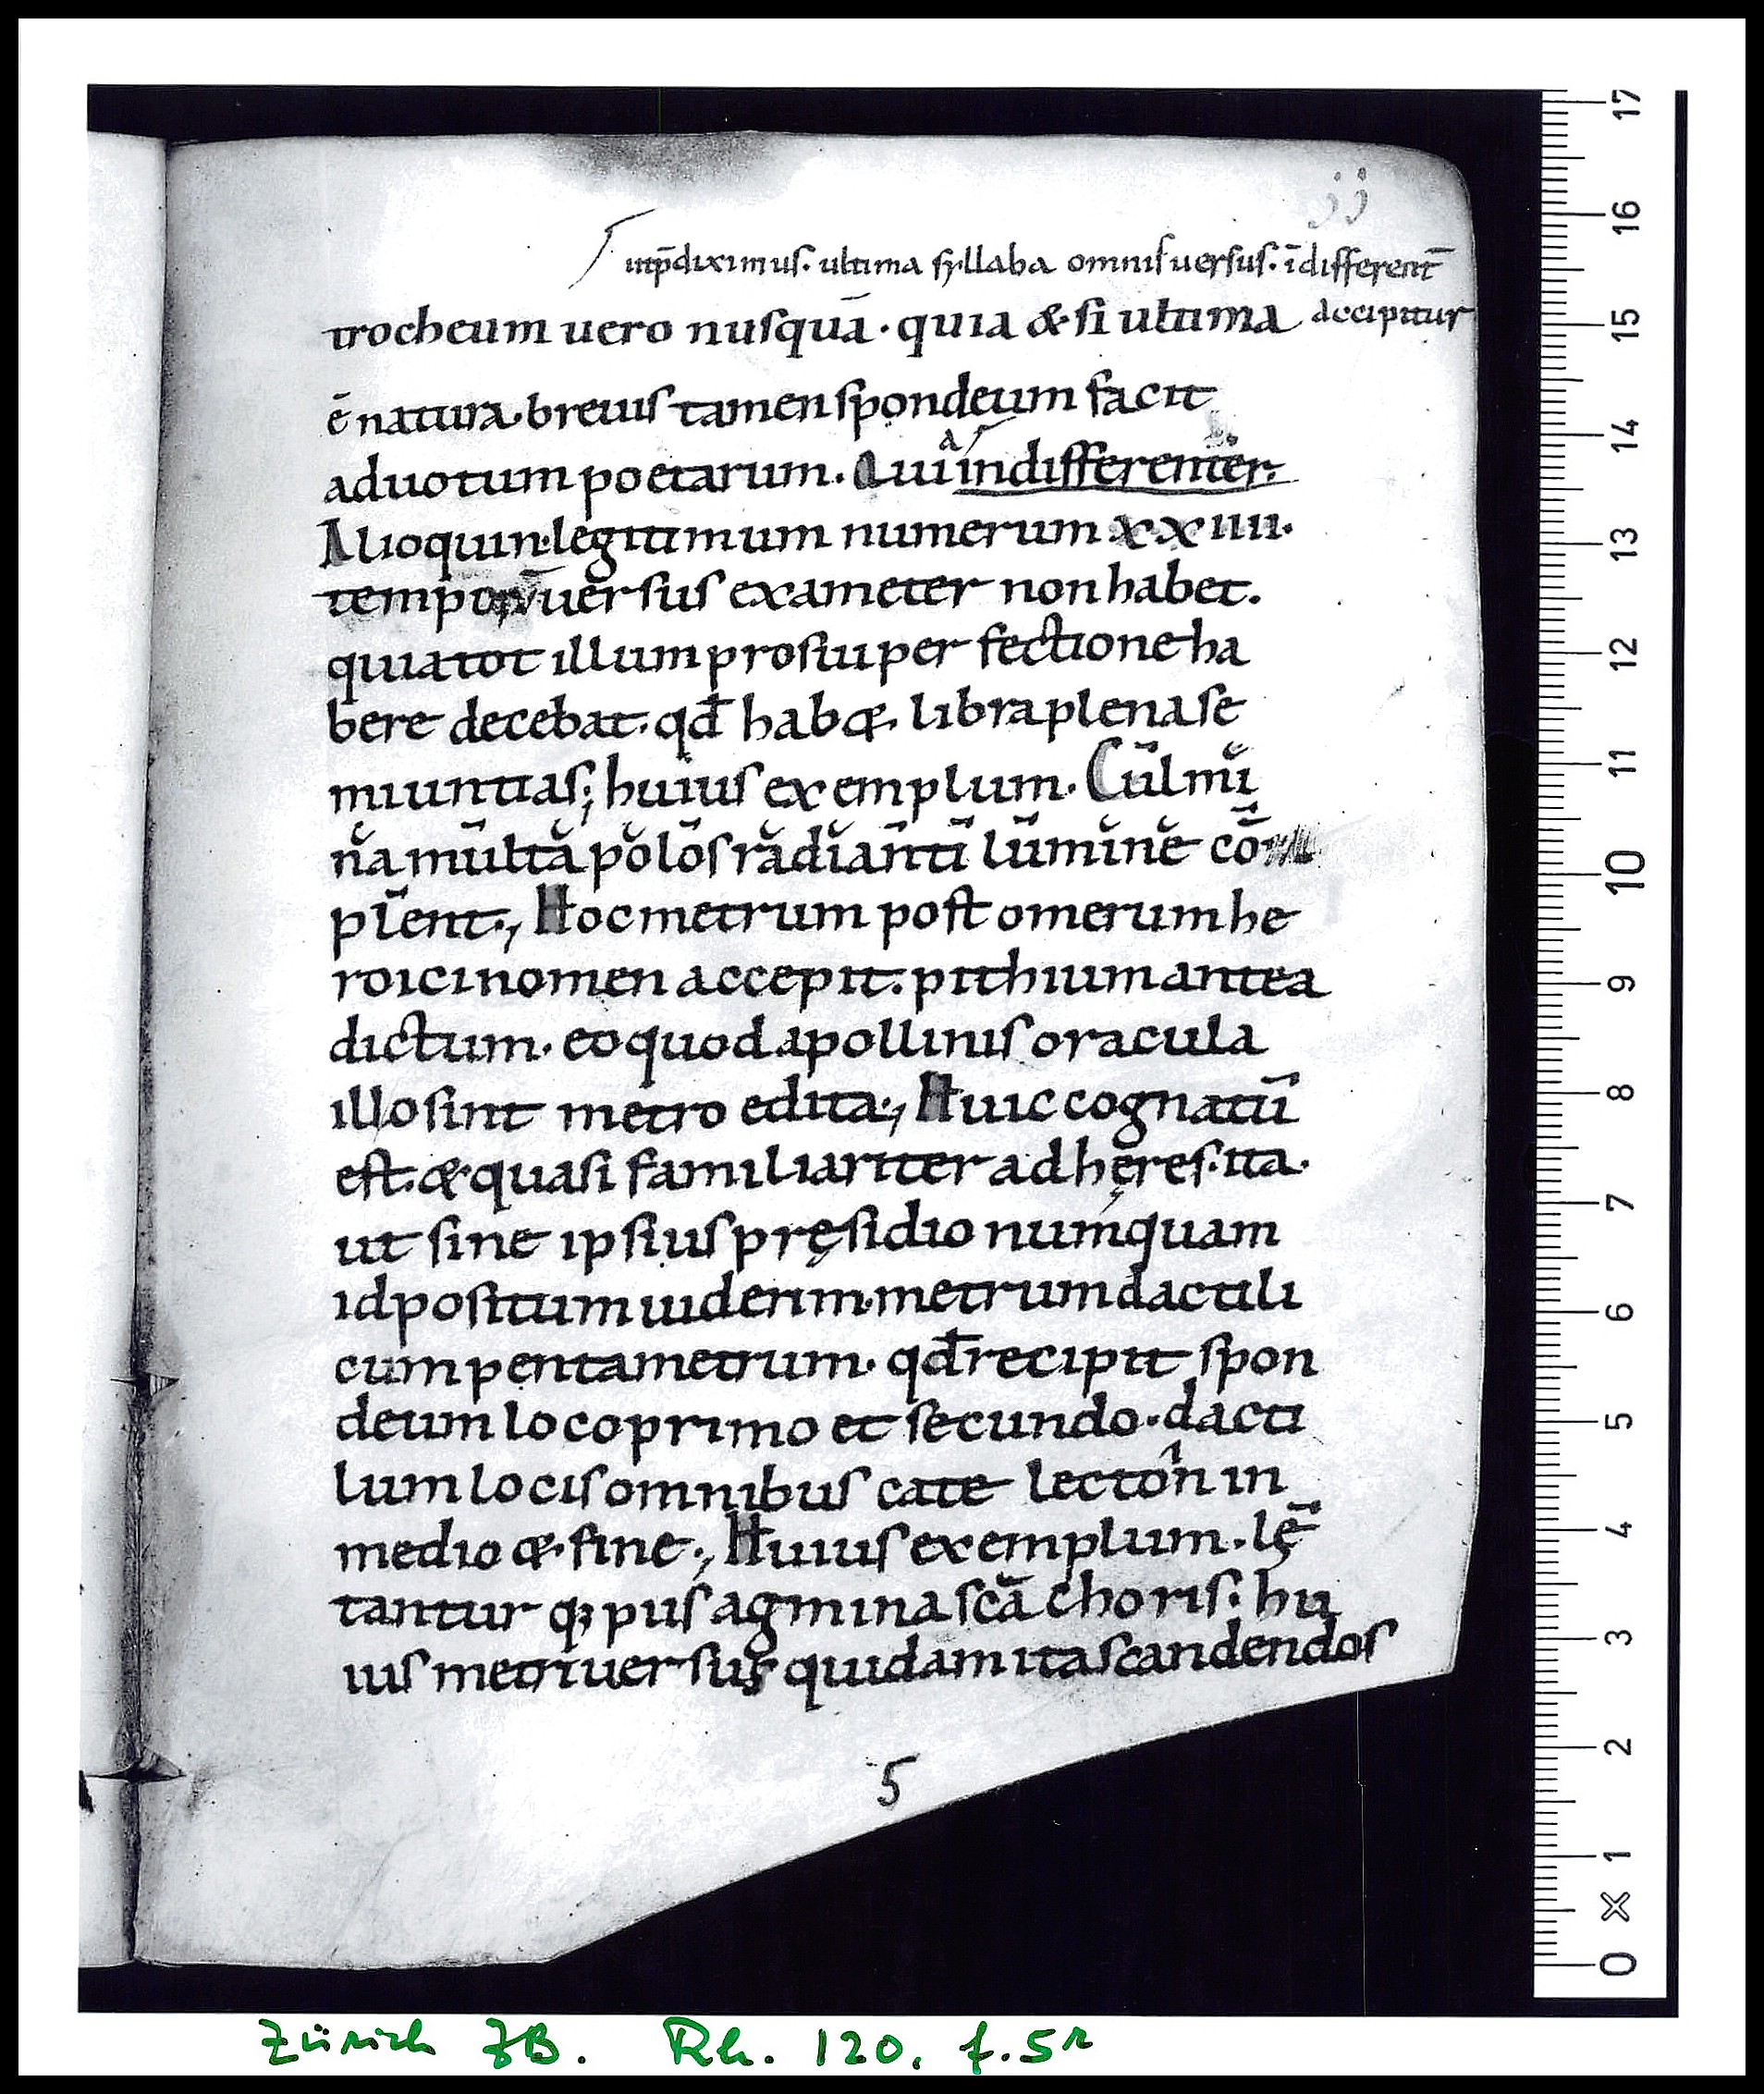 jj
inp̄diximus. ultima syllaba omnis uersus. īdifferent̄
accipitur
trocheum uero nusquā. quia & si ultima
ē natura. breuis tamen spondeum facit
aduotum poetarum. Quīa indifferenter.
Alioquin. legitimum numerum xxiiii.
uersus exameter non habet.
quia tot illum pro sui per fectione ha
bere decebat. qđ hab&. libra plena se
miuntias; huius exemplum. Culmi
na multa polos radianti lumine co
plent., Hoc metrum post omerum he
roici nomen accepit. pithium antea
dictum. eo quod apollinis oracula
illo sint metro edita., Huic cognatū
est. & quasi familiariter adhęres. ita.
ut sine ipsius pręsidio numquam
id positum uiderim. metrum dactili
cum pentametrum. qđ recipit spon
deum loco primo et secundo. dacti
lum locis omnibus cate lecton in
medio & fine., Huius exemplum. lę
tantur q; pus agmina scā choris. hu
ius metri uersus quidam ita scandendos
5
17
16
15
14
13
12
11
10
9
8
7
6
5
4
3
2
1
0 X
Zürich ZB. Rh. 120. f. 5r